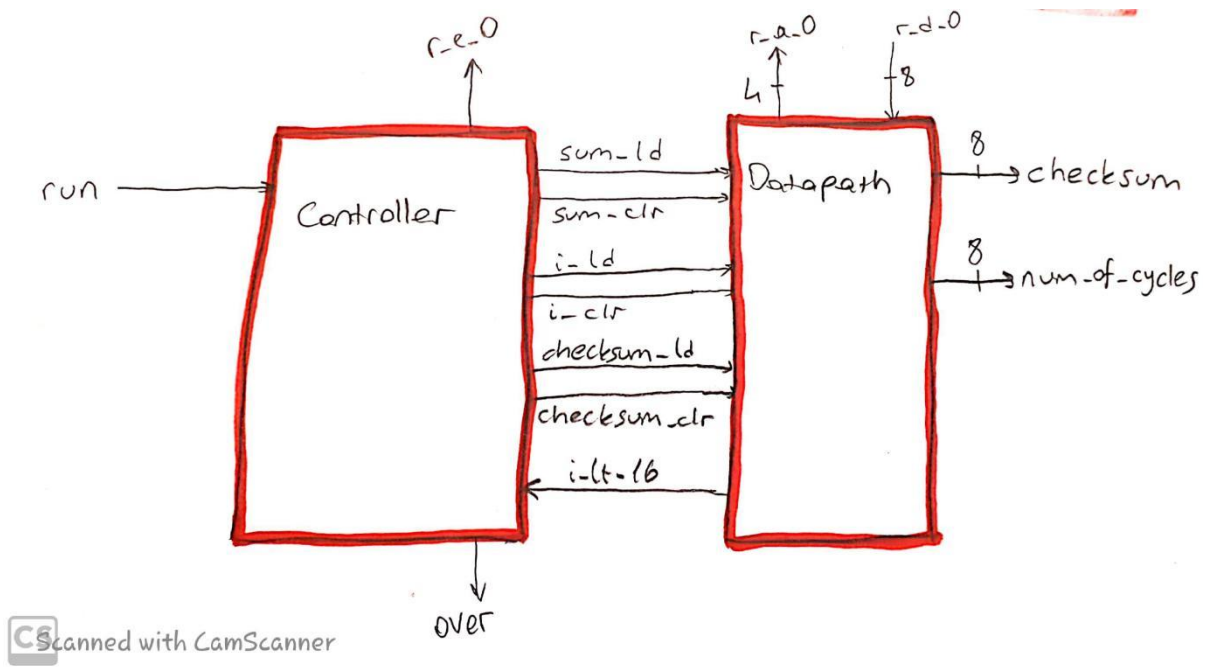 r_e_0
r_a_0
r_d_0
4
8
run
Controller
sum_ld
sum_clr
i_ld
i_clr
checksum_ld
checksum_clr
i_lt_16
Datapath
8
checksum
8
num_of_cycles
over
CS
Scanned with CamScanner